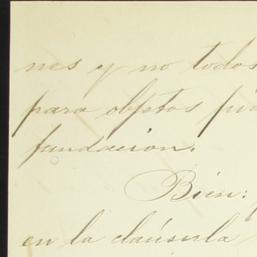 nes y no todos
para objetos
fundación.
Bien:
en la cláusula